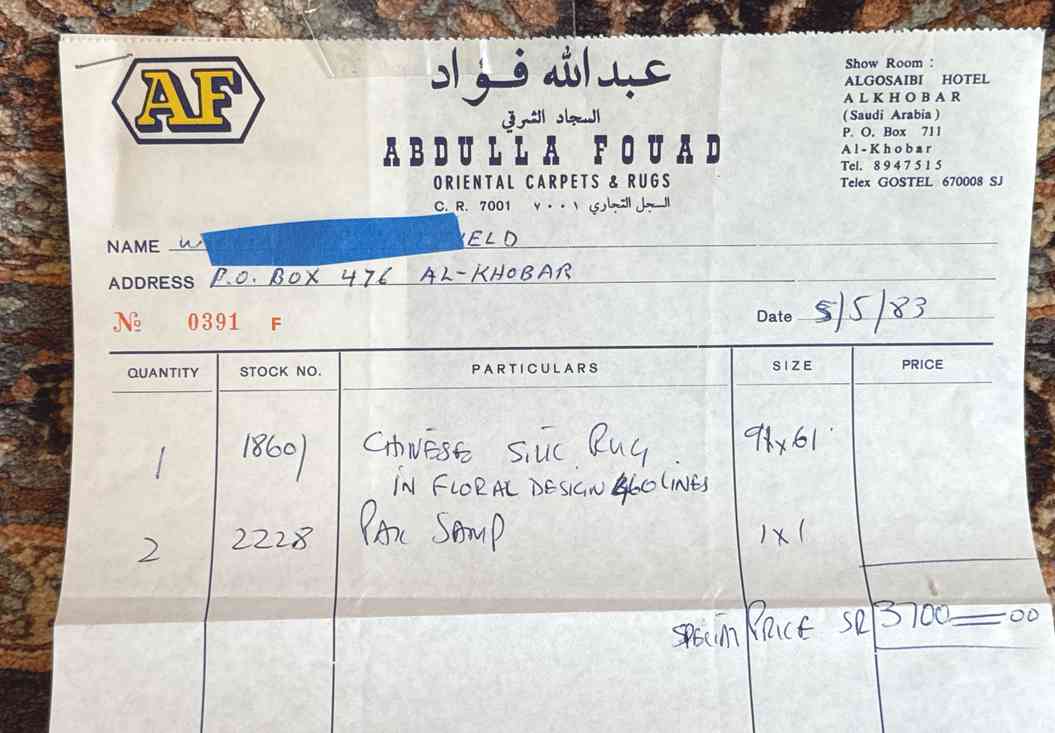 AF
عبدالله فؤاد
السجاد الشرقي
ABDULLA FOUAD
ORIENTAL CARPETS & RUGS
C. R. 7001 السجل التجاري ٧٠٠١
Show Room :
ALGOSAIBI HOTEL
ALKHOBAR
(Saudi Arabia)
P. O. Box 711
Al-Khobar
Tel. 8947515
Telex GOSTEL 670008 SJ
NAME W ELD
ADDRESS P.O. BOX 476 AL-KHOBAR
№ 0391 F
Date 5/5/83
QUANTITY STOCK NO. PARTICULARS SIZE PRICE
1 18601 CHINESE SILK RUG
IN FLORAL DESIGN LINES
2 2228 PAK SAMP 1x1
SPECIAL PRICE SR 3700=00